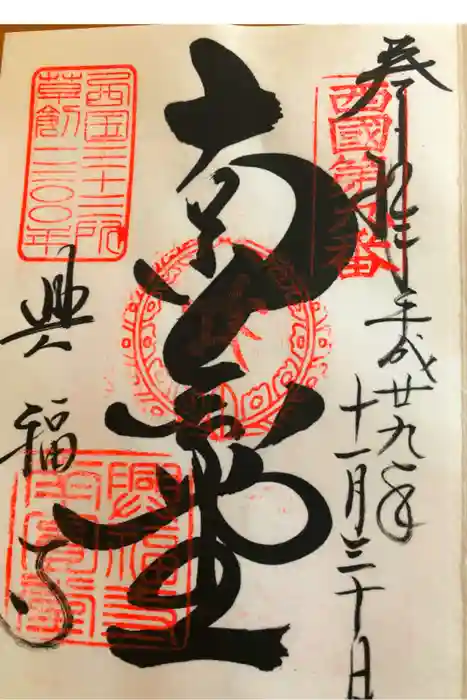 奉拝
平成廿九年
十一月三十日
西國第九番
南円堂
興福寺
西国三十三所
草創一三〇〇年
興福寺
南円堂